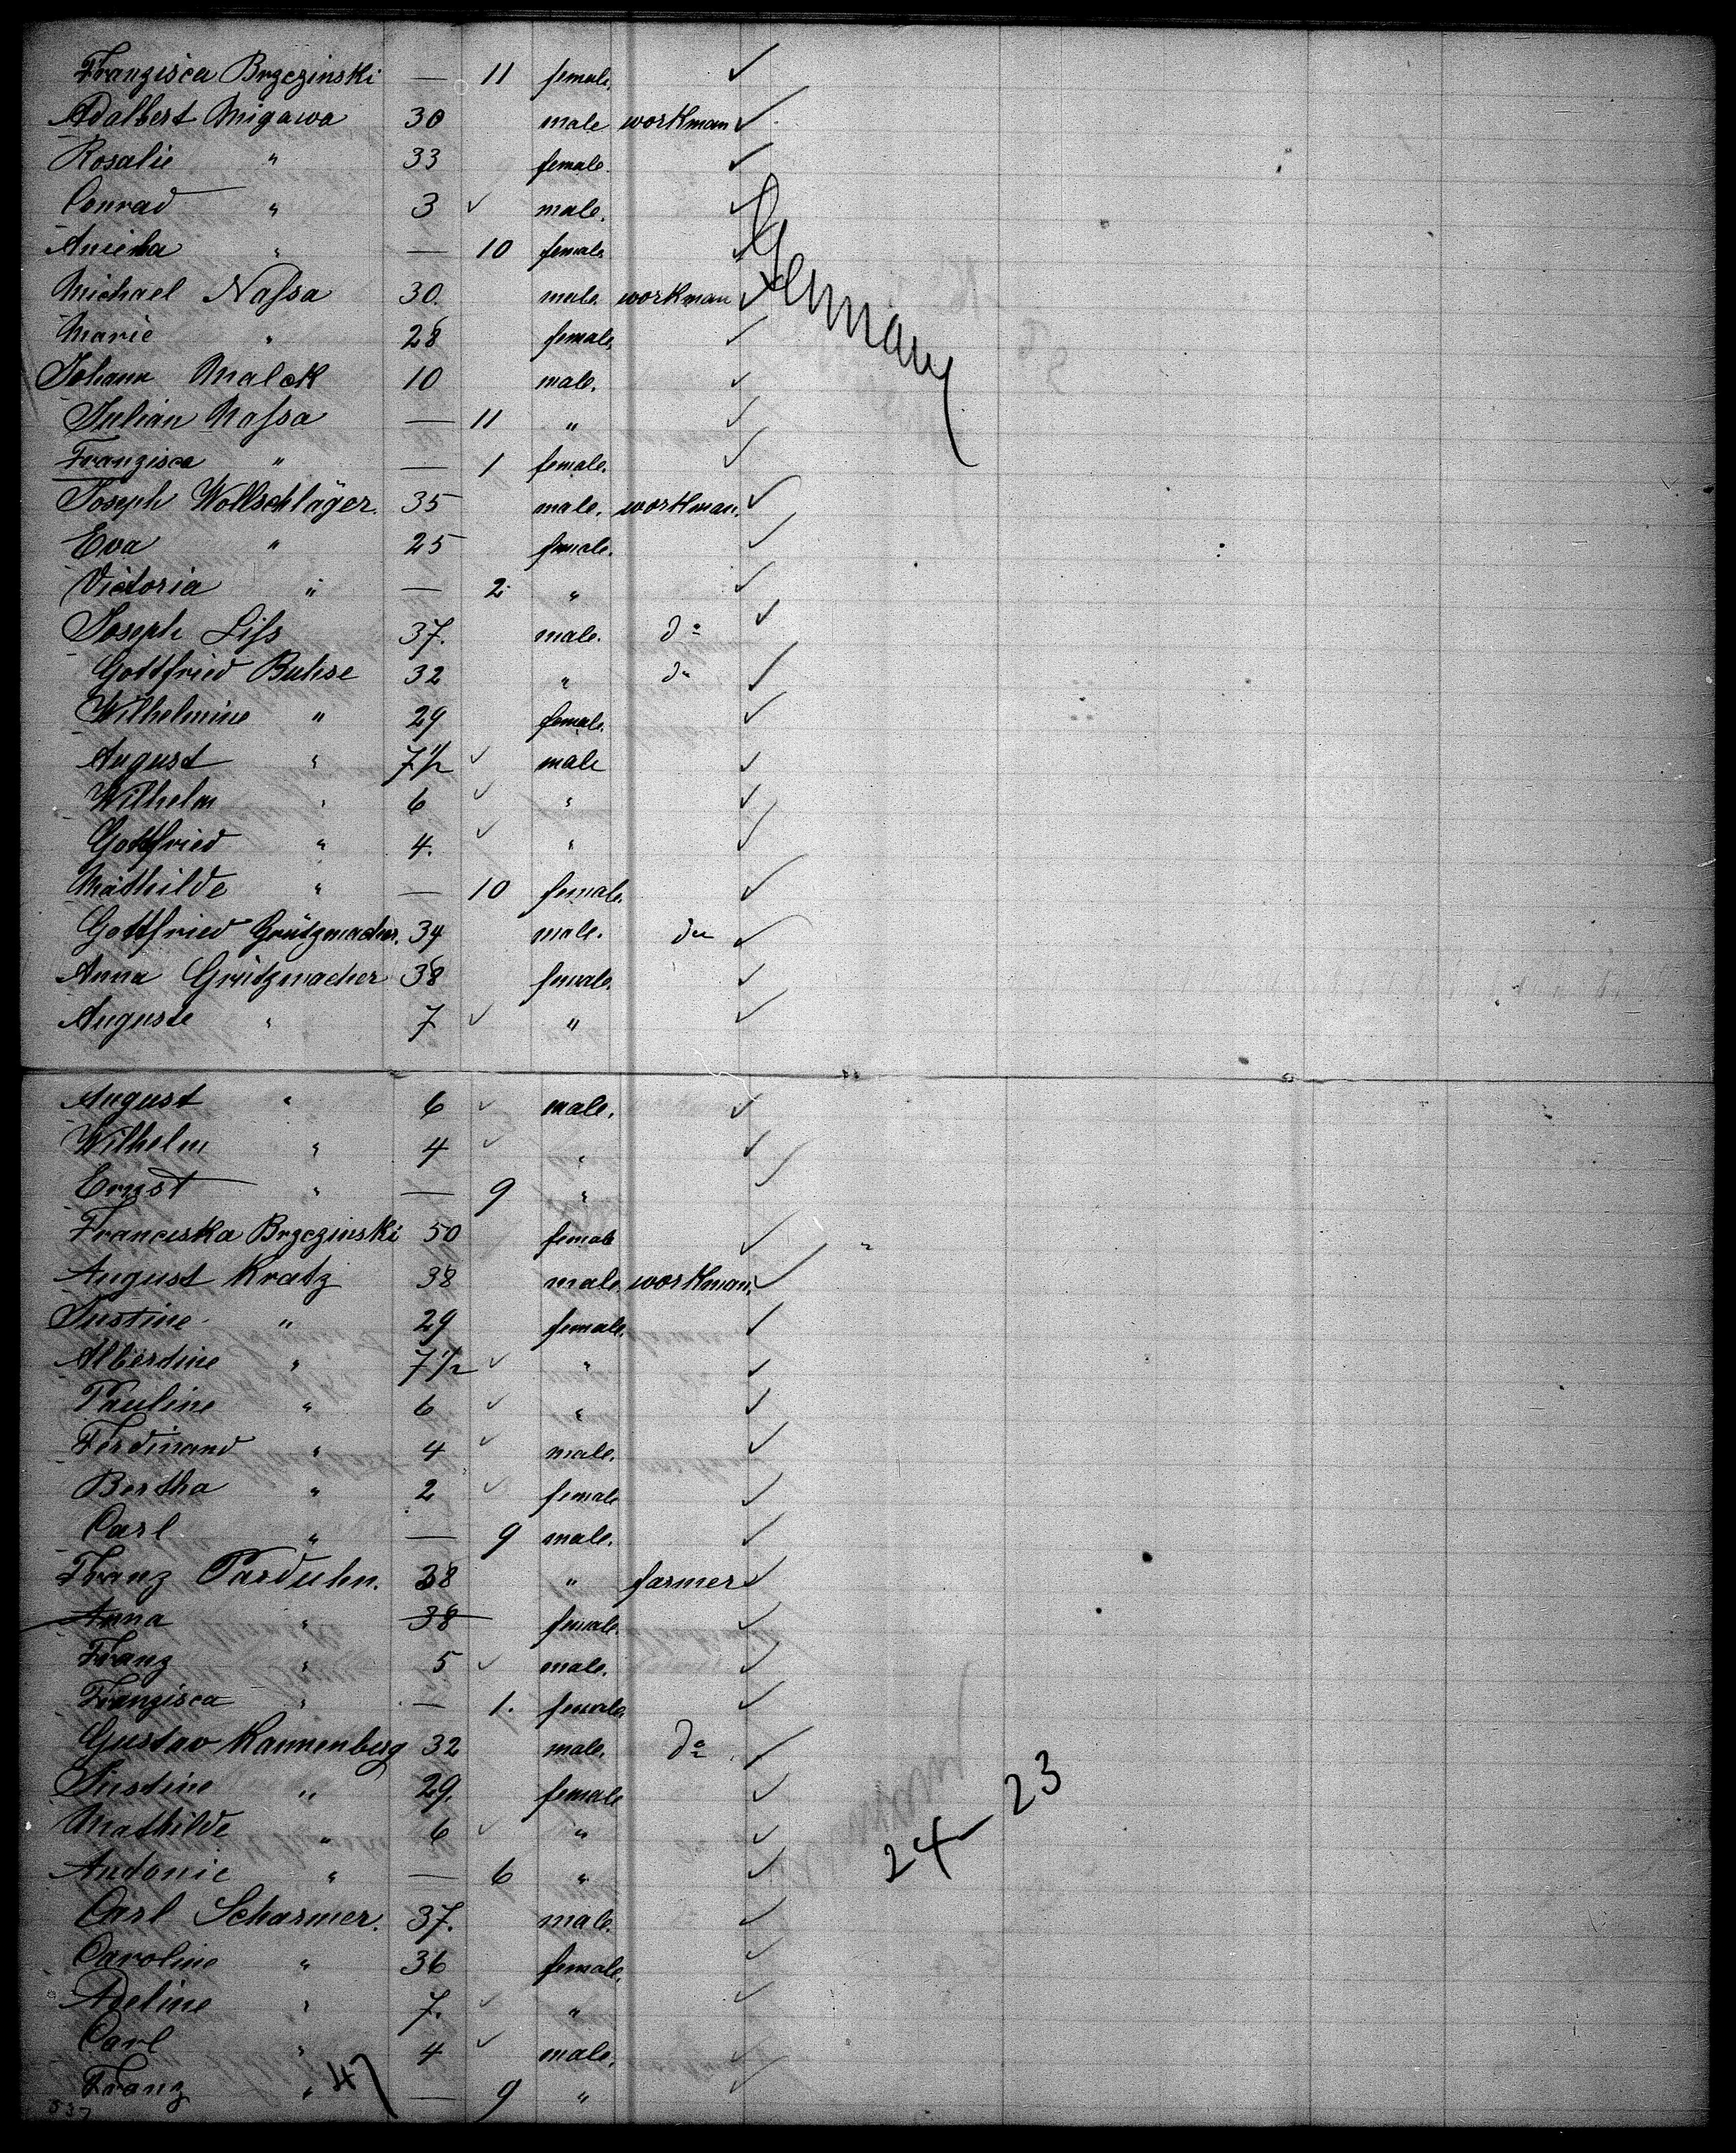 Franzisca Brzezinski — 11 female.
Adalbert Migawa 30 male workman
Rosalie " 33 female.
Conrad " 3 male.
" — 10 female
Michael Naſsa 30. male workman
Marie " 28 female
Johann Malek 10 male.
Julian Naſsa — 11 "
Franzisca " — 1 female.
Joseph Wollschläger. 35 male. workman.
Eva " 25 female.
Victoria " — 2 "
Joseph Liſs 37. male. do
Gottfried Buhse 32 " do
Wilhelmine " 29 female.
August " 7 1/2 male
Wilhelm " 6 "
Gottfried " 4. "
Mathilde " — 10 female.
Gottfried Grützmacher. 34 male. do
Anna Grützmacher 38 female.
Auguste " 7 "
August " 6 male.
Wilhelm " 4 "
Ernst " — 9 "
Franciska Brzezinski 50 female
August Kratz 38 male. workman.
Justine " 29 female.
Albertine " 7 1/2 "
Pauline " 6 "
Ferdinand " 4 male.
Bertha " 2 female
Carl " — 9 male.
Franz Parduhn. 38 " farmer
Anna " 38 female.
Franz " 5 male.
Franzisca " — 1. female
Gustav Kannenberg 32 male. do
Justine " 29. female
Mathilde " 6 "
Antonie " — 6 "
Carl Scharmer. 37. male.
Caroline " 36 female.
Adeline " 7. "
Carl " 4 male.
Franz " — 9 "
47
Germany
24 — 23